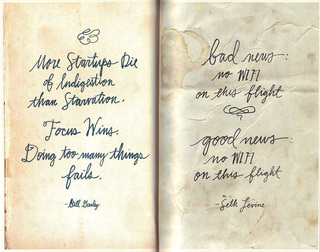 More Startups Die
of Indigestion
than Starvation.
Focus Wins.
Doing too many things
fails.
-Bill Gurley
bad news:
no WIFI
on this flight
good news:
no WIFI
on this flight
-Seth Levine